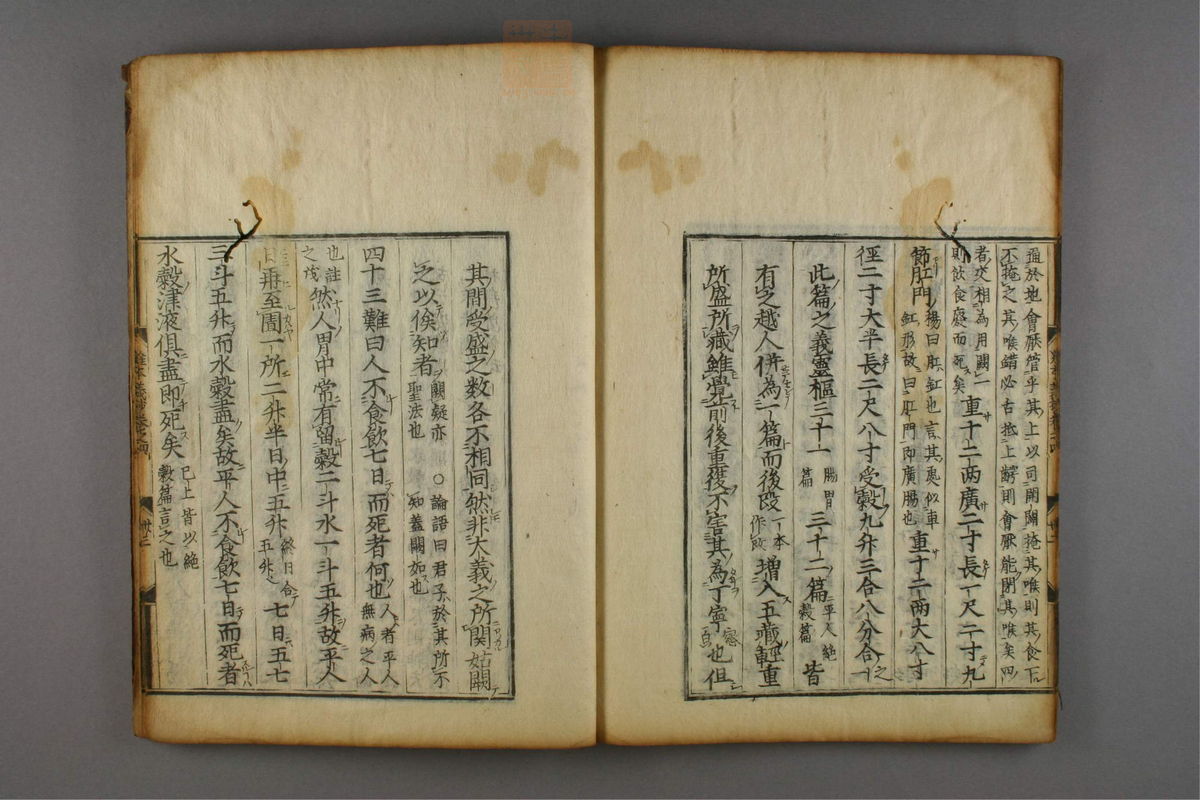 遍於地會厭管乎其上以司開闔掩其喉則其食下
不掩之其喉錯必古抵上齶則會厭能閉其喉矣四
者交相為用闕一
則飲食廢而死矣
重十二兩廣二寸長一尺二寸九
節肛門
楊曰肛釭也言其處似車
釭形故曰肛門即廣腸也
重十二兩大八寸
徑二寸大半長二尺八寸受穀九升三合八分合一
之
此篇之義靈樞三十一
腸胃
篇
三十二篇
平人絕
穀篇
皆
有之越人併為一篇而後段
一本
作改
增入五臟輕重
所盛所藏雖覺前後重復不害其為丁寧也但
其間受盛之数各不相同然非大義之所関姑闕
之以俟知者
闕疑亦
聖法也
○論語曰君子於其所不
知蓋闕如也
四十三難曰人不食飲七日而死者何也
人者平人
無病之人
也註
之戌
然人胃中常有留穀二斗水一斗五升故平人
日再至圊一所二升半日中五升
終日合
五升之
七日五七
三斗五升而水穀盡矣故平人不食飲七日而死者
水穀津液俱盡即死矣
已上皆以絕
穀篇言之也
卅二